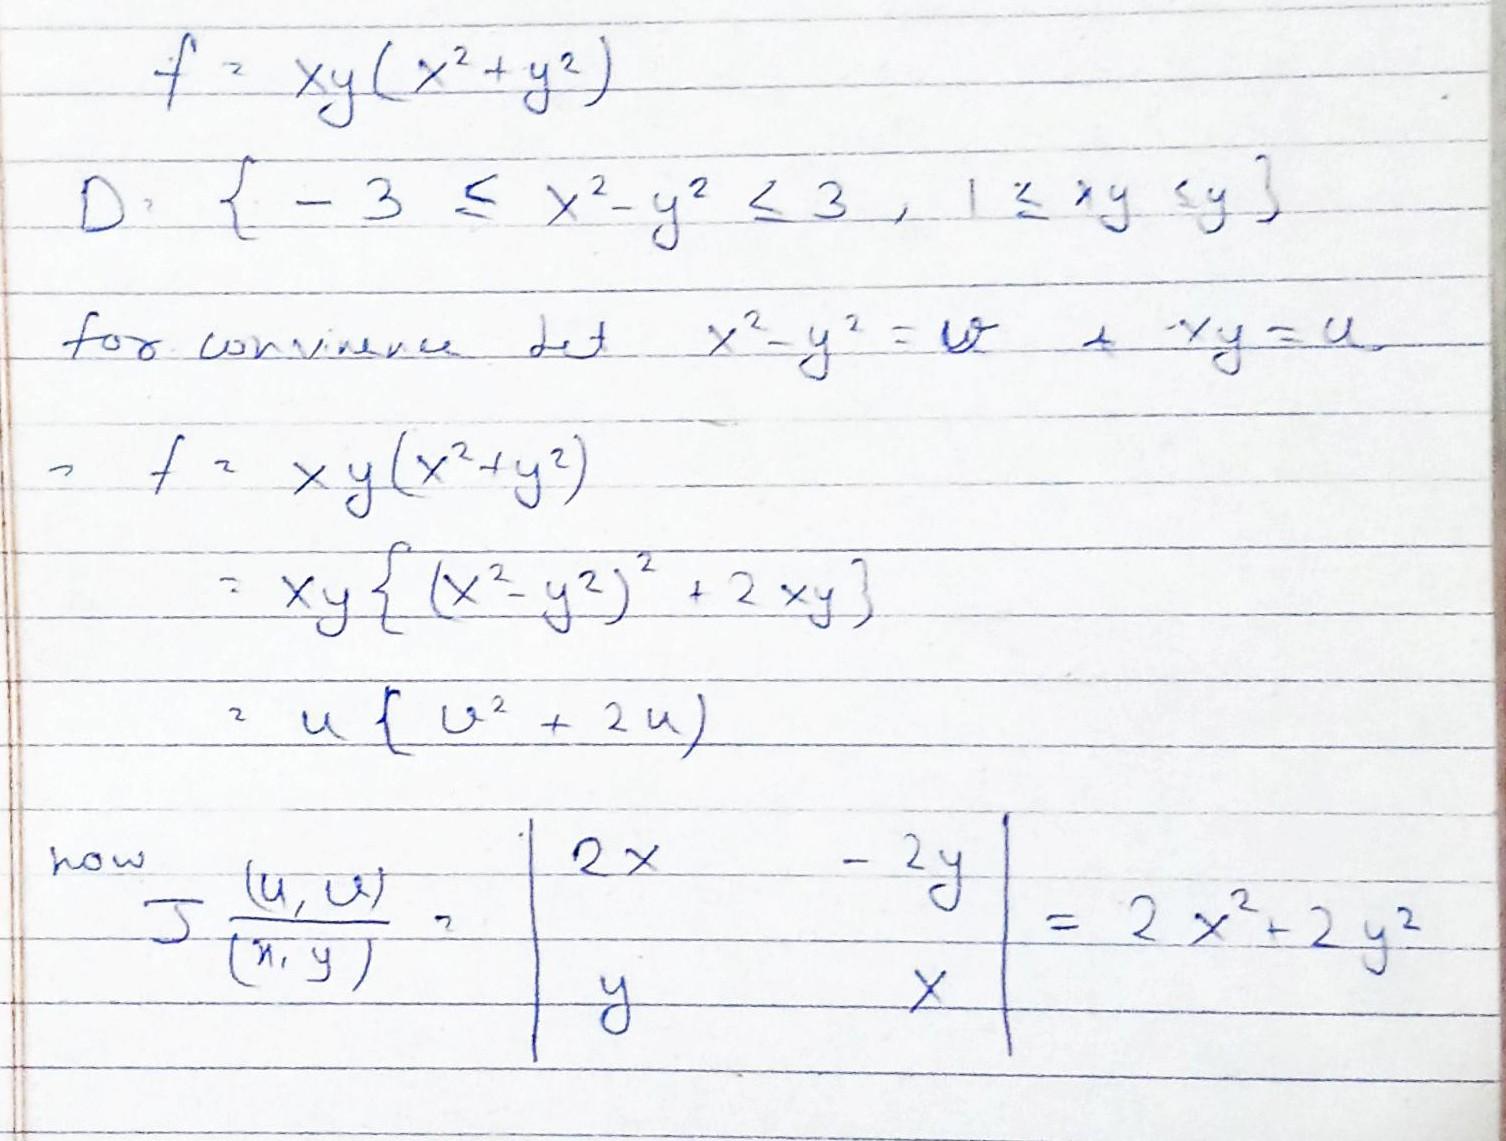 f = xy(x²+y²)
D: { - 3 ≤ x²-y² ≤ 3 , 1 ≤ xy ≤ y }
for let x²-y² = v + xy = u.
= f = xy(x²+y²)
= xy{ (x²-y²)² + 2xy}
= u { v² + 2u)
now J (u, v) / (x, y) = | 2x - 2y | = 2x²+2y²
y x